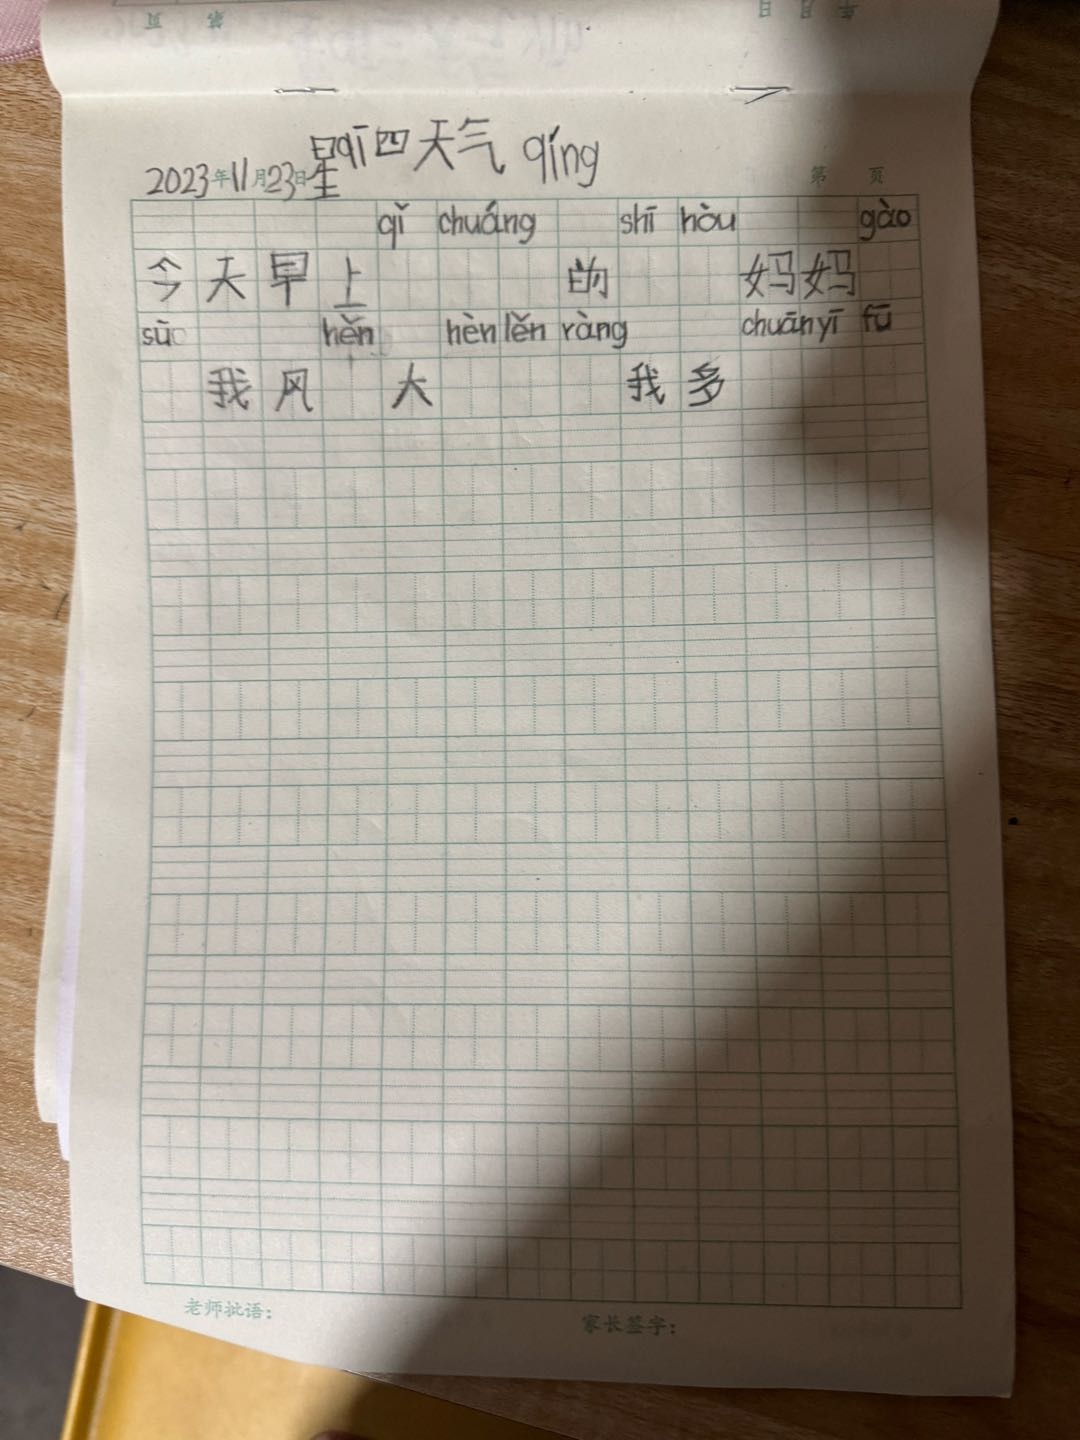 第 页 年 月 日
2023年11月23日星qī四天气 qíng
第 页
qǐ chuáng shī hòu gào
今天早上 的 妈妈
sū hěn hèn lěn ràng chuānyī fū
我风 大 我多
老师批语: 家长签字: